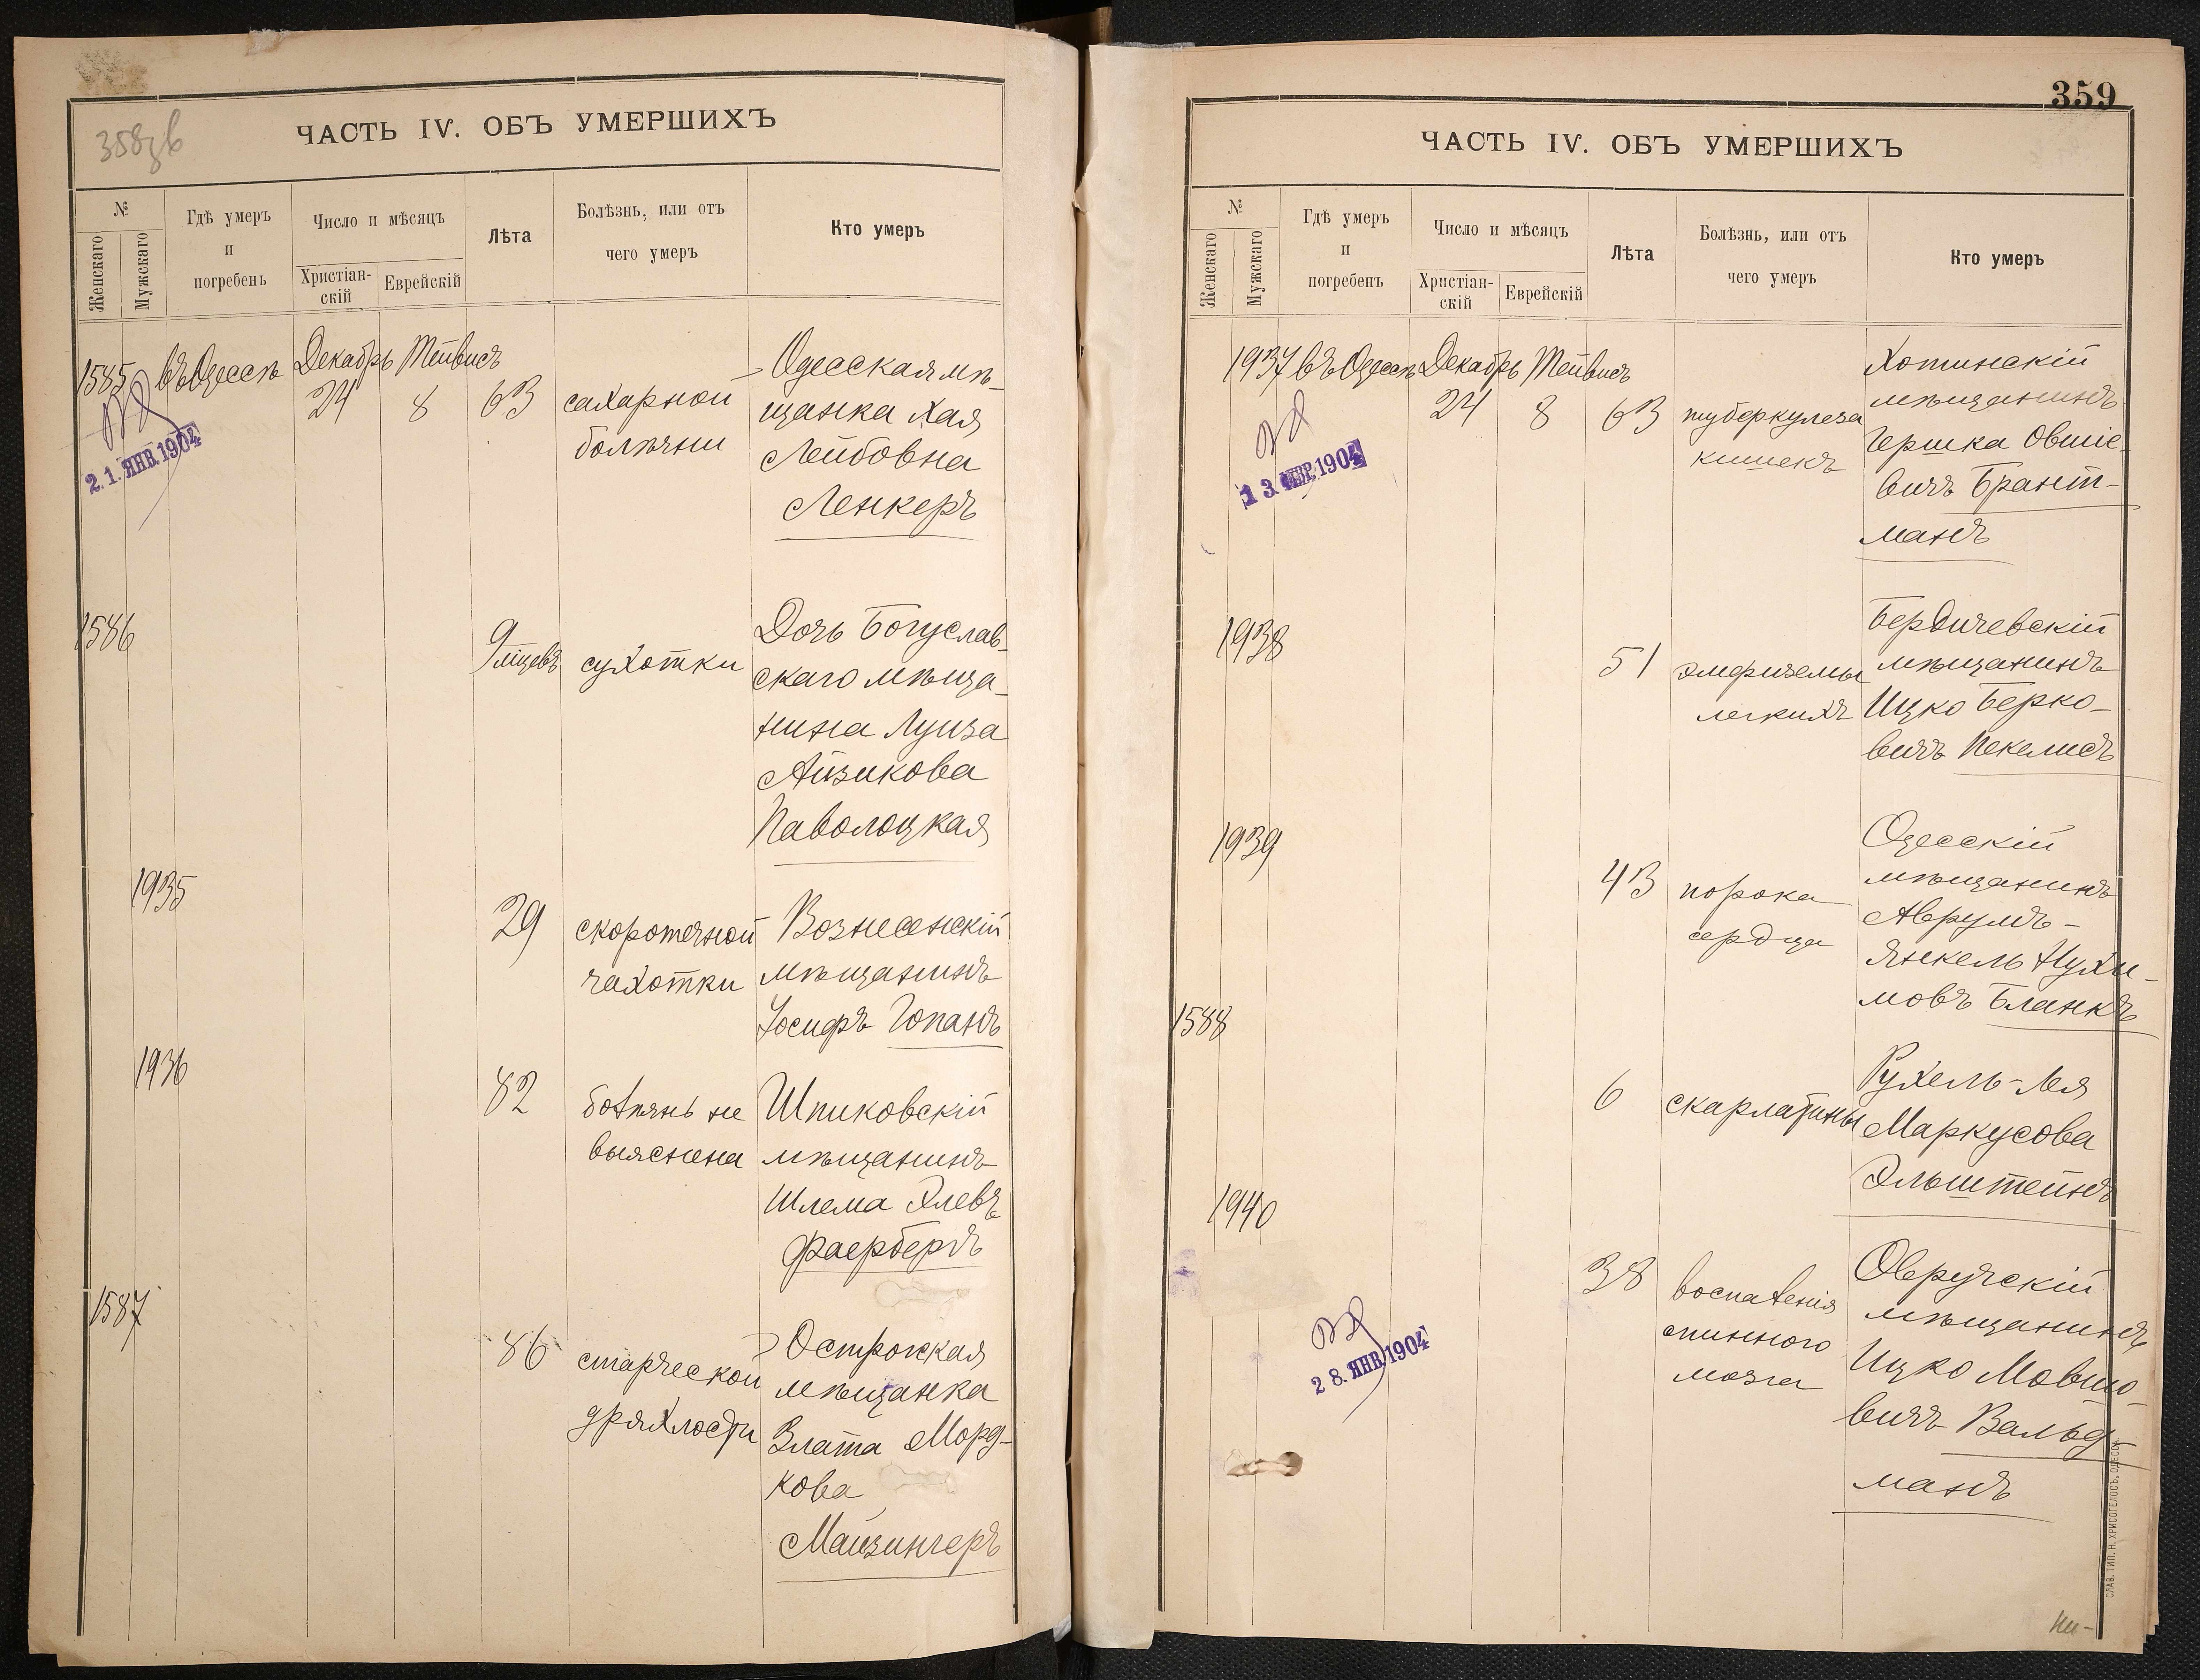 358зв
ЧАСТЬ IV. ОБЪ УМЕРШИХЪ
№
Женскаго
Мужскаго
Гдѣ умеръ
и
погребенъ
Число и мѣсяцъ
Христіан-
скій
Еврейскій
Лѣта
Болѣзнь, или отъ
чего умеръ
Кто умеръ
1585 въ Одессѣ Декабрь Тейвисъ
24 8 63
2. 1. ЯНВ. 1904
сахарной
болѣзни
Одесская мѣ-
щанка Хая
Лейбовна
Ленкеръ
1586
9 мѣцевъ
сухотки
Дочь Богуслав-
скаго мѣща-
нина Луиза
Айзикова
Паволоцкая
1935
29
скоротечной
чахотки
Вознесенскій
мѣщанинъ
Іосифъ Гопанъ
1936
82
болѣзнь не
выяснена
Шпиковскій
мѣщанинъ
Шлема Элевъ
Фаербергъ
1587
86
старческой
дряхлости
Острожская
мѣщанка
Злата Морд-
кова
Майзингеръ
359
ЧАСТЬ IV. ОБЪ УМЕРШИХЪ
№
Женскаго
Мужскаго
Гдѣ умеръ
и
погребенъ
Число и мѣсяцъ
Христіан-
скій
Еврейскій
Лѣта
Болѣзнь, или отъ
чего умеръ
Кто умеръ
1937 въ Одессѣ Декабрь Тейвисъ
24 8 63
1 3 1904
туберкулеза
кишекъ
Хотинскій
мѣщанинъ
Гершка Овшіе-
вичъ Брант-
манъ
1938
51
эмфиземы
легкихъ
Бердичевскій
мѣщанинъ
Ицко Берко-
вичъ Пекелисъ
1939
43
порока
сердца
Одесскій
мѣщанинъ
Аврумъ-
Янкель Нухи-
мовъ Бланкъ
1588
6
скарлатины
Рухель-Лея
Маркусова
Эльштейнъ
1940
38
2 8. ЯНВ. 1904
воспаленія
спинного
мозга
Овручскій
мѣщанинъ
Ицко Мовшо-
вичъ Вальд-
манъ
СЛАВ. ТИП. Н. ХРИСОГЕЛОСЪ, ОДЕССА.